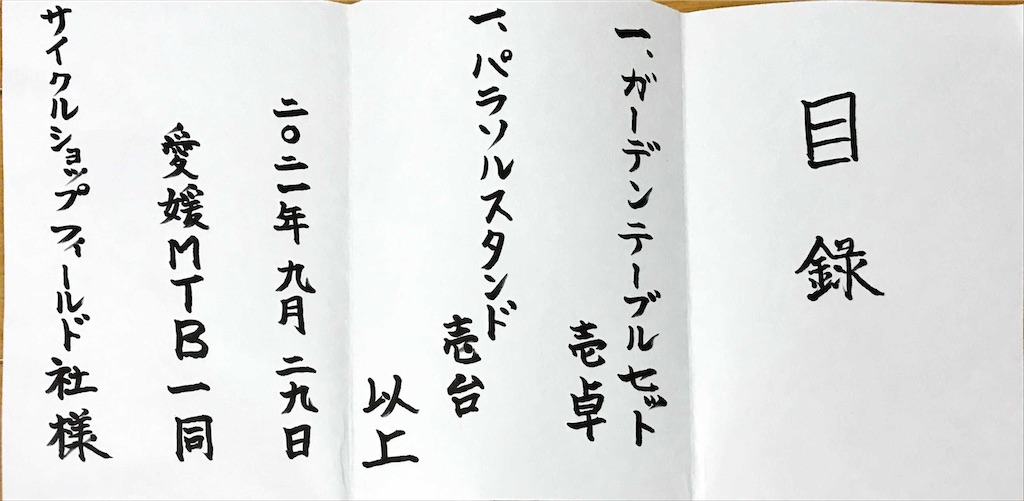 目録
一、ガーデンテーブルセット
壱卓
一、パラソルスタンド
壱台
以上
二〇二一年九月二九日
愛媛MTB一同
サイクルショップフィールド社様